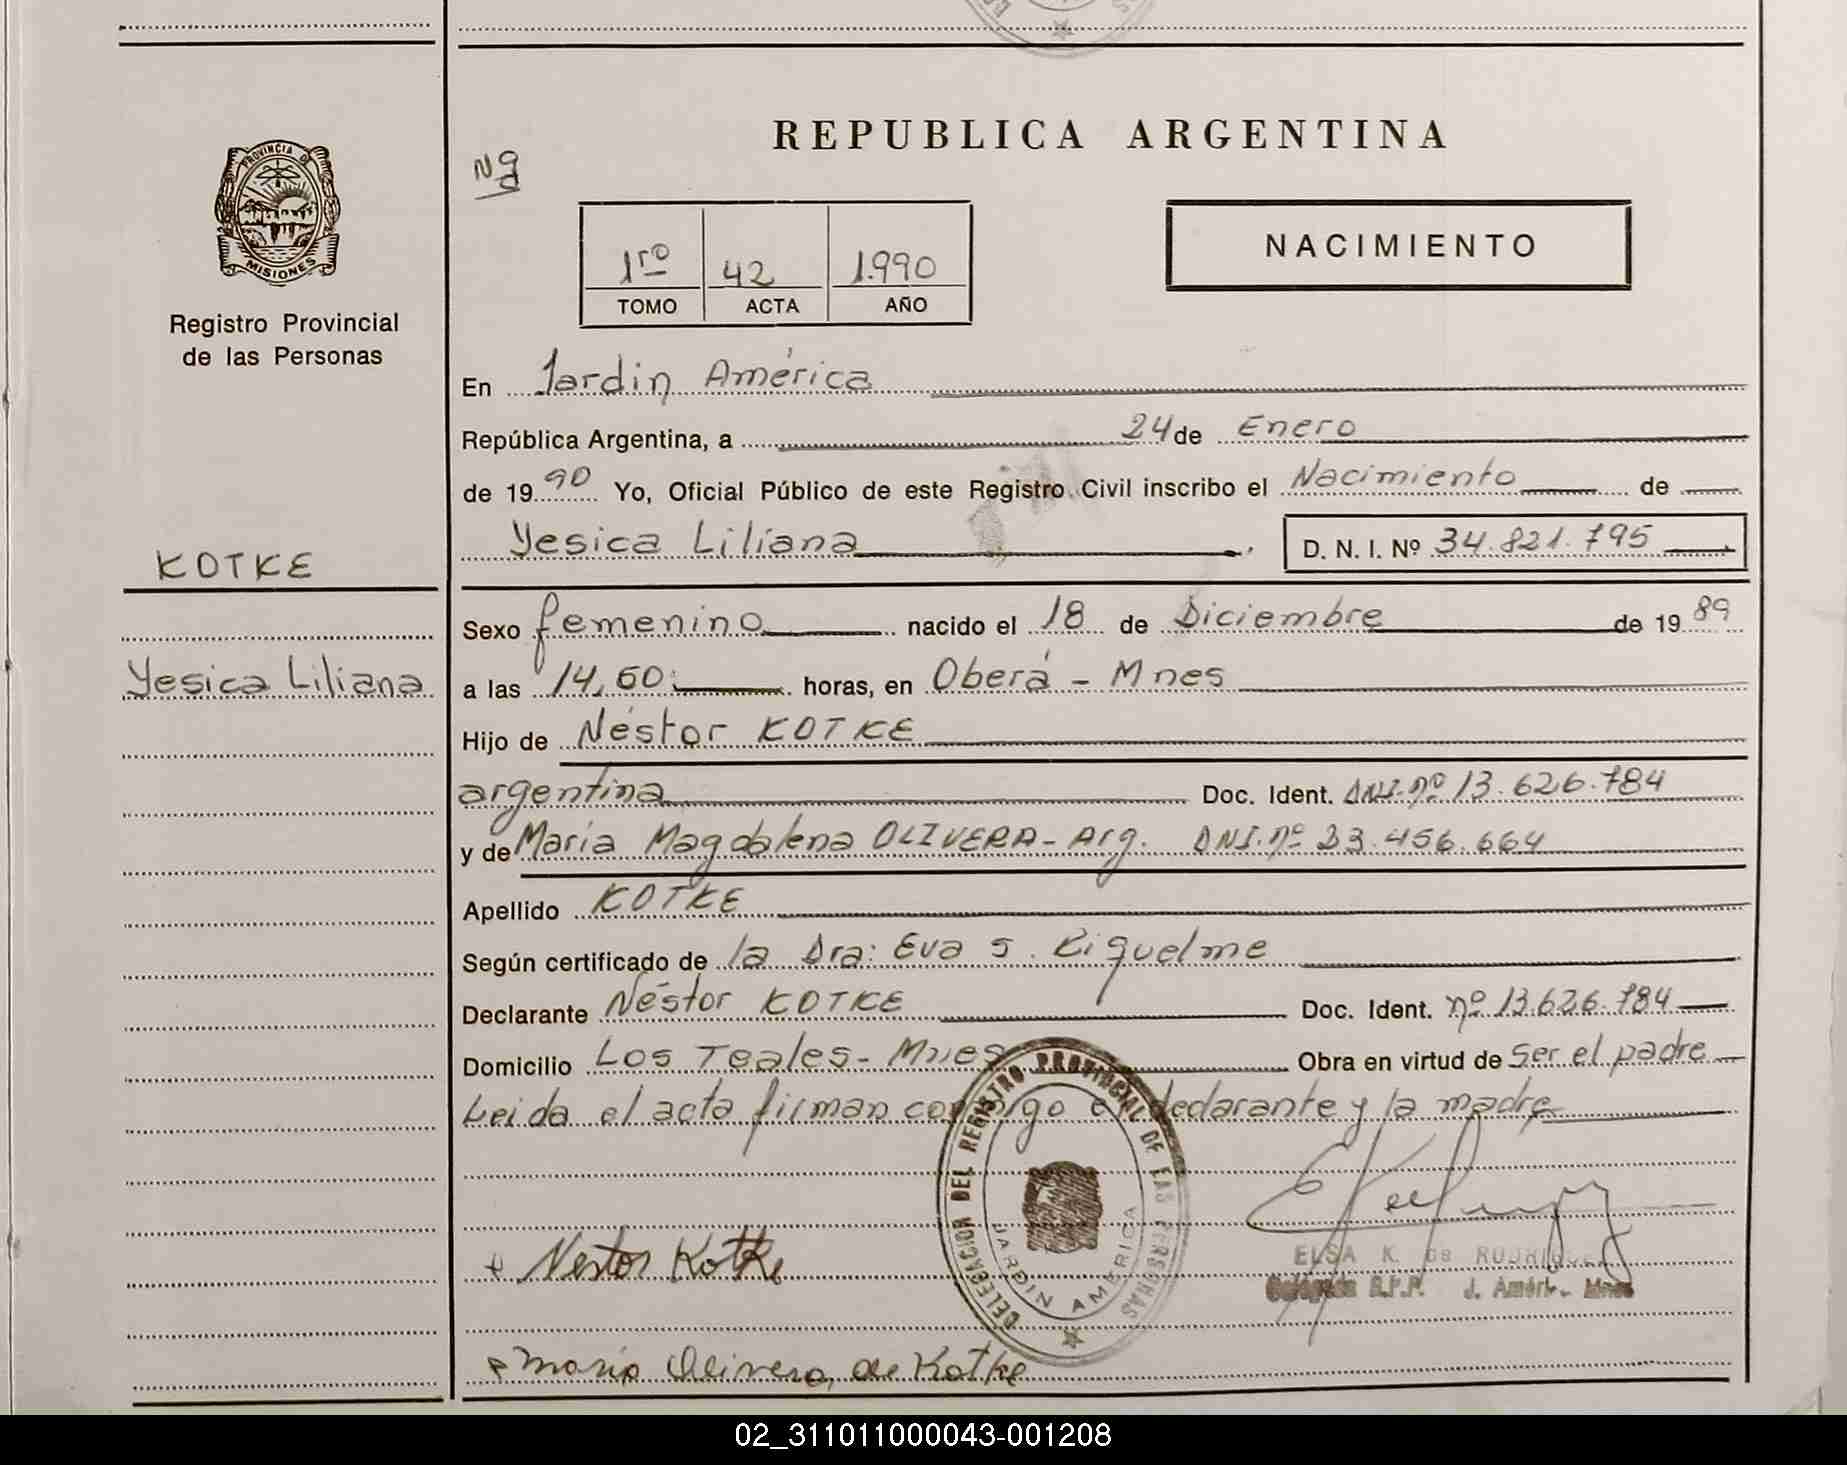 REPUBLICA ARGENTINA
Nº
PROVINCIA DE
MISIONES
Registro Provincial
de las Personas
1ro 42 1.990
TOMO ACTA AÑO
NACIMIENTO
En Jardin América
República Argentina, a 24 de Enero
de 1990 Yo, Oficial Público de este Registro Civil inscribo el Nacimiento de
Yesica Liliana D. N. I. Nº 34.821.795
KOTKE
Yesica Liliana
Sexo femenino nacido el 18 de Diciembre de 1989
a las horas, en Oberá - Mnes
Hijo de Néstor KOTKE
argentina Doc. Ident. DNI.nº 13.626.784
y de Maria Magdalena OLIVERA - Arg. DNI.nº 23.456.664
Apellido KOTKE
Según certificado de la Dra: Eva S. Riquelme
Declarante Néstor KOTKE Doc. Ident. nº 13.626.784
Domicilio Los Teales - Mnes Obra en virtud de Ser el padre
Leida el acta firman conmigo el declarante y la madre
DELEGACION DEL REGISTRO PROVINCIAL DE LAS PERSONAS
JARDIN AMERICA
Nestor Kotke
ELSA K. de RODRIGUEZ
Delegada R.P.P. J. Améri. - Mnes
Maria Olivera de Kotke
02_311011000043-001208